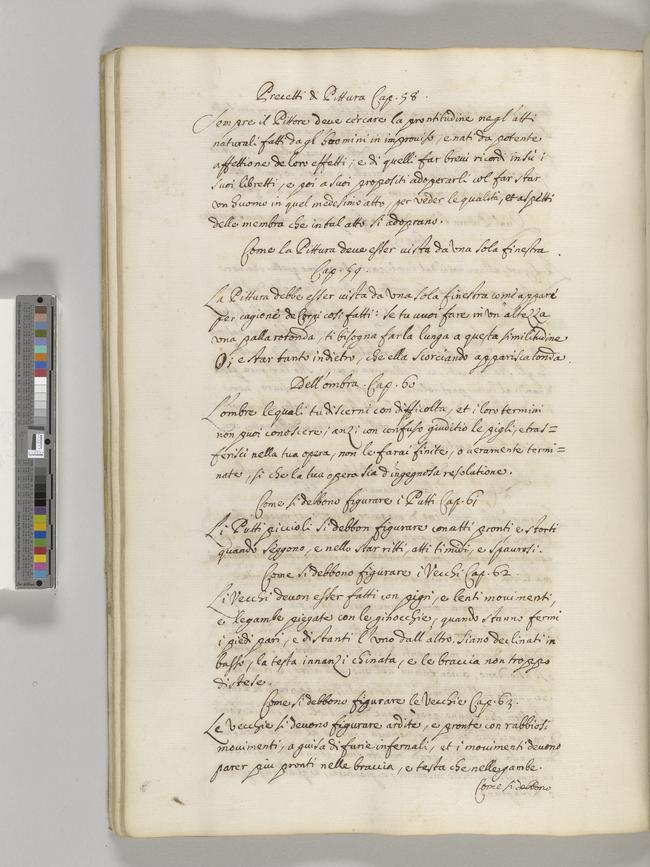 Precetti di Pittura Cap. 58.
Sempre il Pittore deve cercare la prontitudine negl'atti
naturali fatti dagl'huomini in improviso, e nati da potente
affettione de loro effetti; e di quelli far brevi ricordi in sù i
suoi libretti, e poi a suoi propositi adoperarli col far star
un huomo in quel medesimo atto, per veder le qualità, et aspetti
delle membra che in tal atto si adoprano.
Come la Pittura deve esser vista da una sola finestra.
Cap. 59.
La Pittura debbe esser vista da una sola finestra come appare
per cagione de Corpi così fatti: se tu vuoi fare in un'altezza
una palla rotonda, ti bisogna farla lunga a questa similitudine
O; e star tanto indietro, che ella scorciando apparisca tonda.
Dell'ombra. Cap. 60
L'ombre lequali tu discerni con difficolta, et i loro termini
non puoi conoscere; anzi con confuso giuditio le pigli, e tras=
ferisci nella tua opera, non le farai finite, o veramente termi=
nate, si che la tua opera sia d'ingegnosa resolutione.
Come si debbono figurare i Putti Cap. 61
Li Putti piccioli si debbon figurare con atti pronti e storti
quando seggono, e nello star ritti, atti timidi, e paurosi.
Come si debbono figurare i Vecchi Cap. 62.
Li Vecchi devon esser fatti con pigri, e lenti movimenti,
e le gambe piegate con le ginocchie, quando stanno fermi
i piedi pari, e distanti l'uno dall'altro, siano declinati in
basso, la testa innanzi chinata, e le braccia non troppo
distese.
Come si debbono figurare le Vecchie Cap. 63.
Le Vecchie si devono figurare ardite, e pronte con rabbiosi
movimenti, a guisa di furie infernali, et i movimenti devono
parer piu pronti nelle braccia, e testa che nelle gambe.
Come si debbono